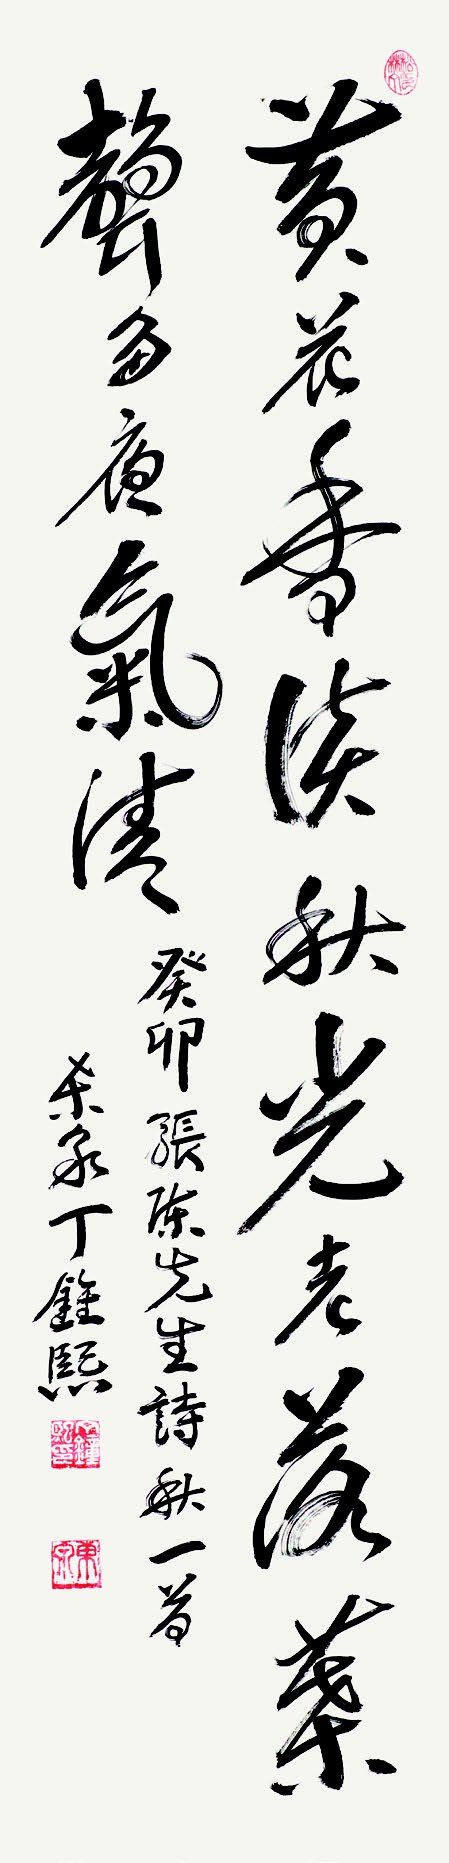 黃花香淡秋光老落葉
聲多夜氣清
癸卯 張陳先生詩 秋一首
泉丁鍾熙